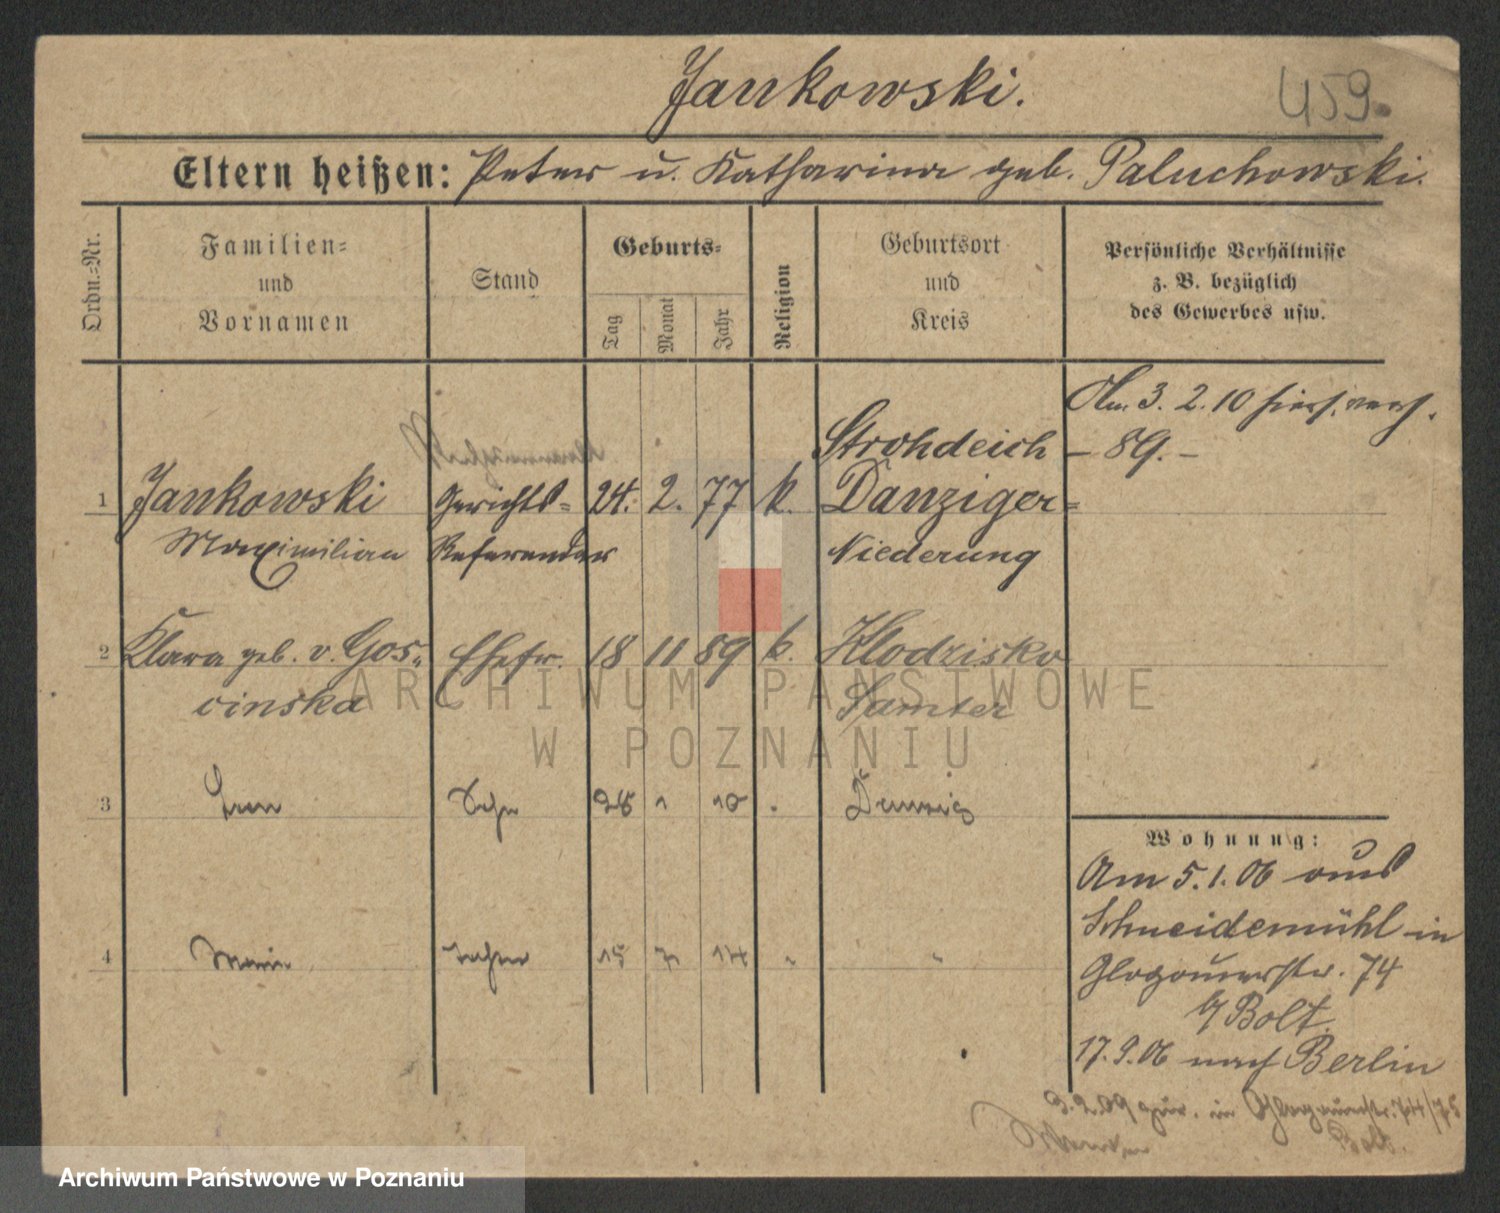 Jankowski.
459.
Eltern heißen: Peter u. Katharina geb. Paluchowski.
Ordn.=Nr.
Familien=
und
Vornamen
Stand
Geburts=
Tag
Monat
Jahr
Religion
Geburtsort
und
Kreis
Persönliche Verhältnisse
z. B. bezüglich
des Gewerbes usw.
Am 3. 2. 10 hierh. verh.
Strohdeich – 89. –
1 Jankowski Gerichts= 24. 2. 77 k. Danziger=
Maximilian Referendar Niederung
2 Klara geb. v. Gos= Ehefr. 18 11 89 k. Klodzisko
cinska Samter
3 Sohn 1 10 Danzig
4 Maria 15 7 14 "
Wohnung:
Am 5. 1. 06 aus
Schneidemühl in
Glogauerstr. 74
b/ Bolt.
17. 9. 06 nach Berlin
3. 2. 09 zur. in Glogauerstr. 74/75
Bolt.
ARCHIWUM PAŃSTWOWE
W POZNANIU
Archiwum Państwowe w Poznaniu